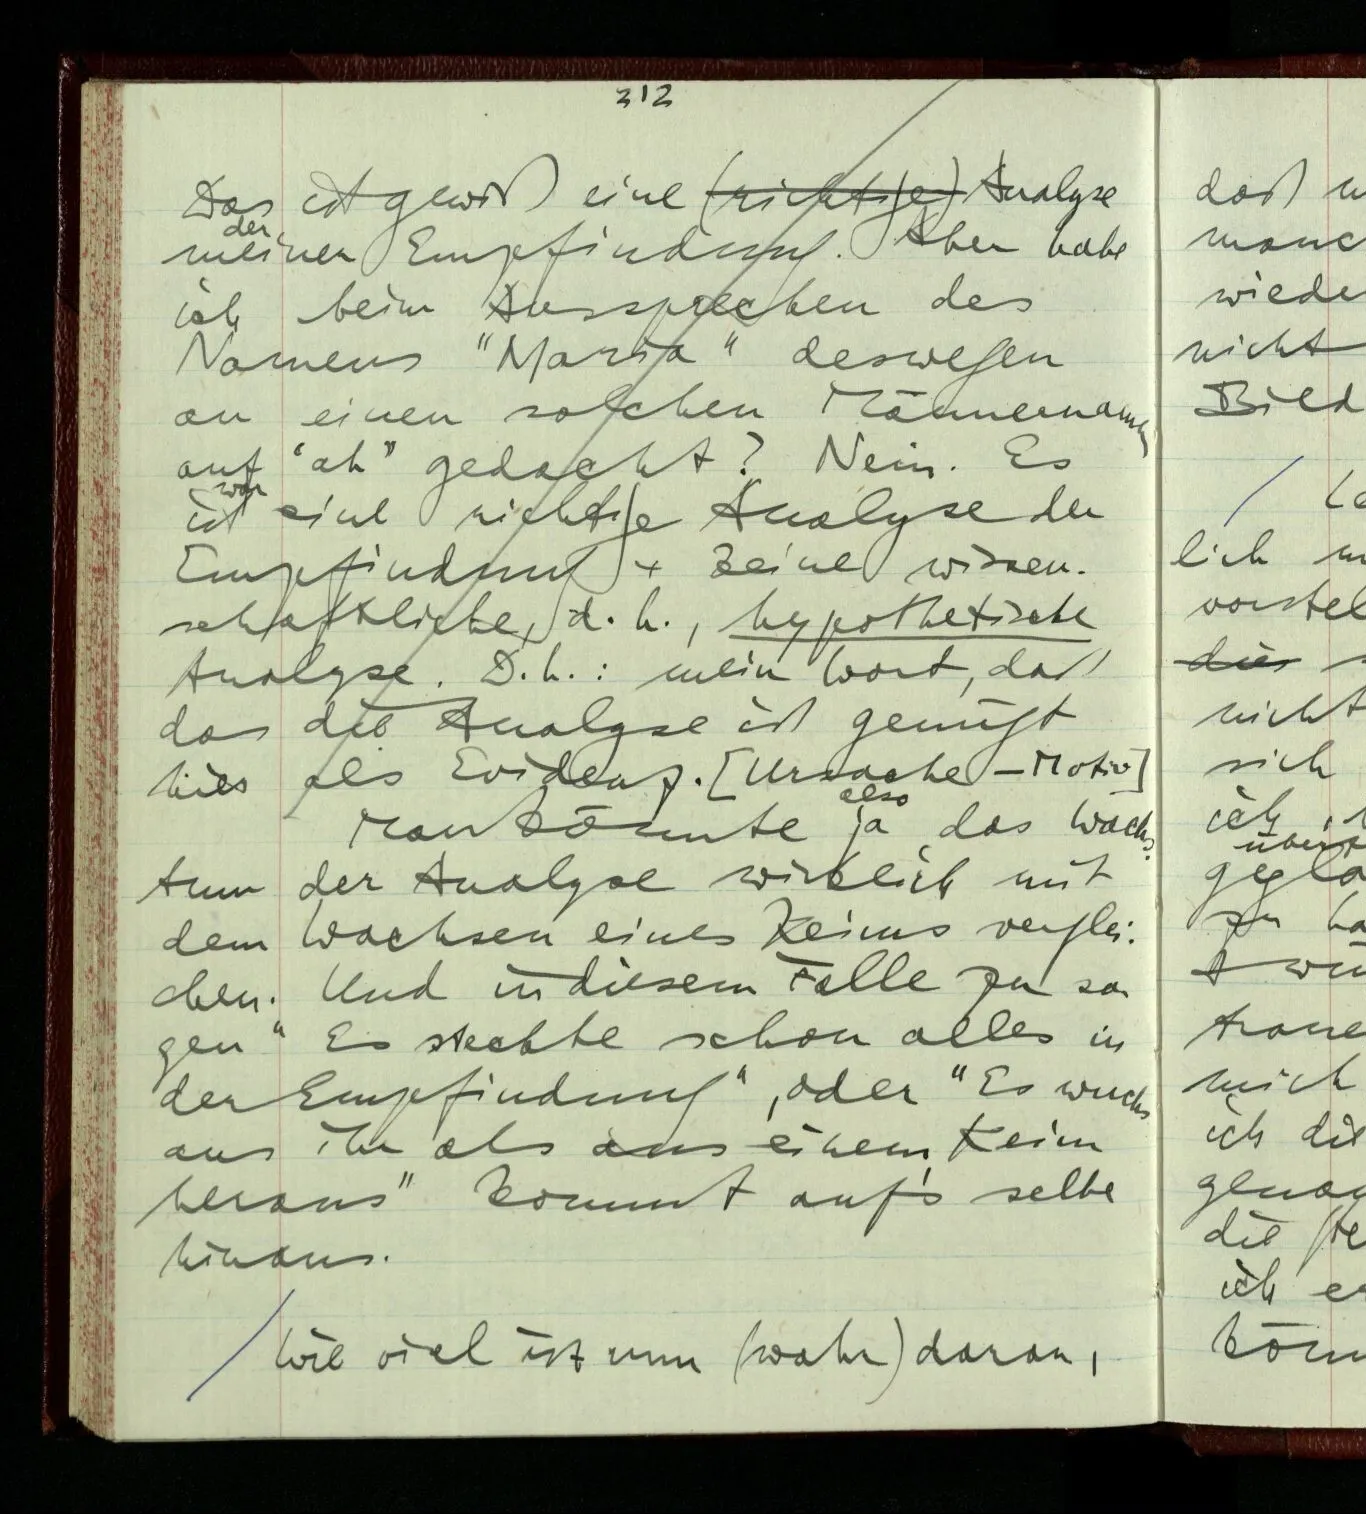 312
Das ist gewiß eine (richtige) Analyse
der
meiner Empfindung. Aber habe
ich beim Aussprechen des
Namens "Maria" deswegen
an einen solchen Männernamen
auf "ah" gedacht? Nein. Es
war
ist eine richtige Analyse der
Empfindung + keine wissen-
schaftliche, d.h., hypothetische
Analyse. D.h.: mein Wort, daß
das die Analyse ist genügt
hier als Evidenz. [Ursache – Motiv]
also
Man könnte ja das Wachs-
tum der Analyse wirklich mit
dem Wachsen eines Keims verglei-
chen. Und in diesem Falle zu sa-
gen "Es steckte schon alles in
der Empfindung", oder "Es wuchs
aus ihr als aus einem Keim
heraus" kommt auf's selbe
hinaus.
/ Wie viel ist nun (wahr) daran,
daß
wieder
nicht
Bild
/
lich
dies
nicht
sich
ich
zu
mich
ich die
die
ich